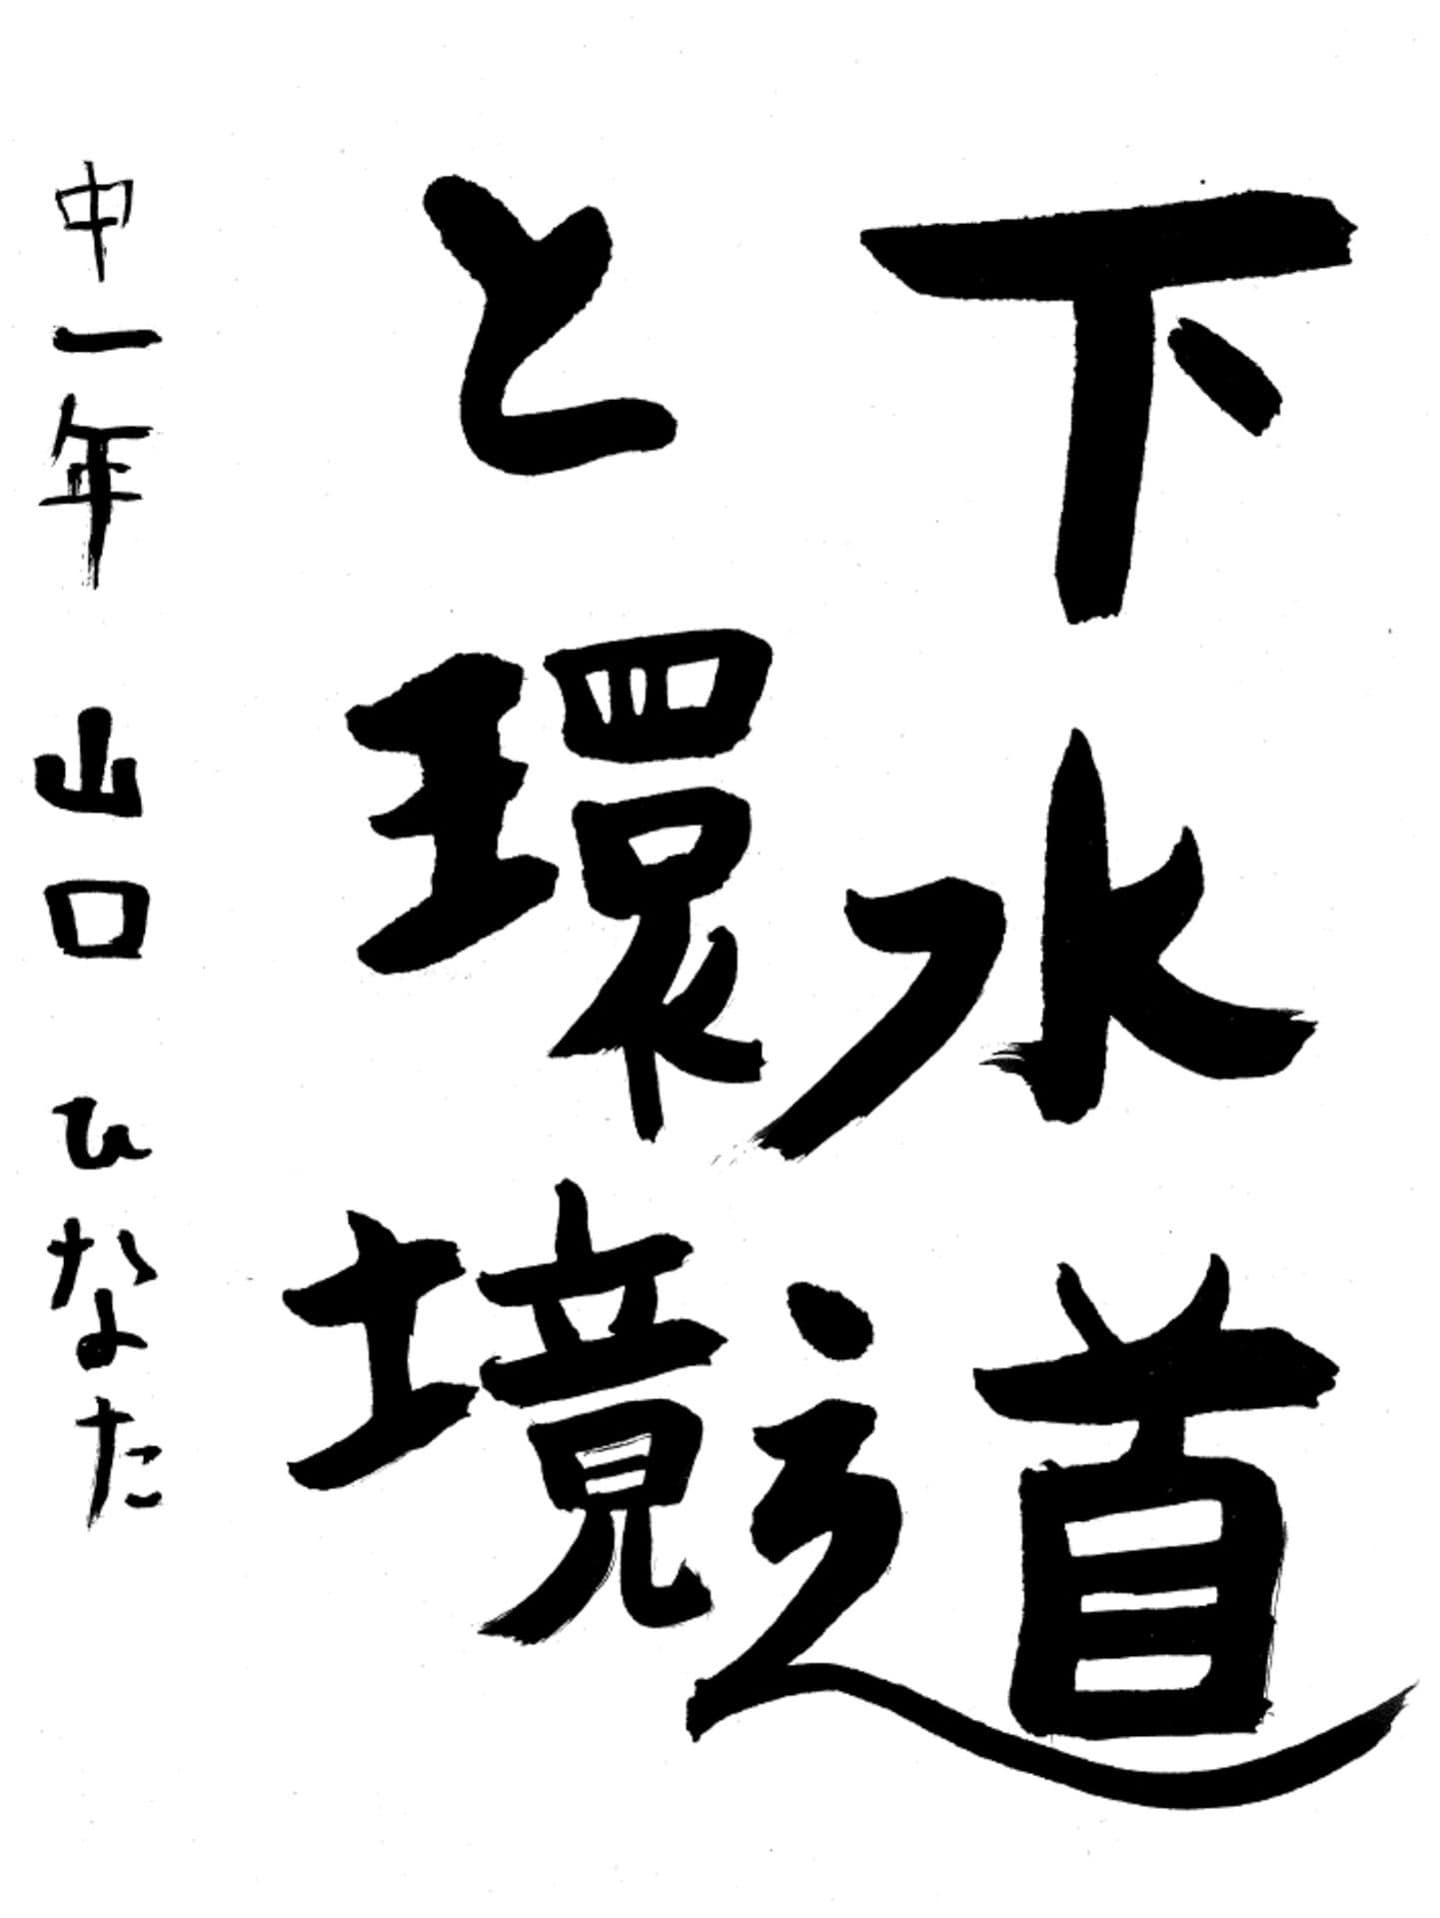 下水道
と環境
中一年 山口 ひなた